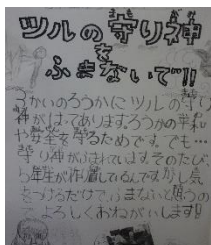 ツルの守り神
を
ふまないで!!
3かいのろうかにツルの守り
神がはってあります。ろうかの平和
や安全を守るためです。でも…
守り神がふまれています。そのたび、
5年生が作り直しているんです。少し気
をつけるだけで、ふまないと思うので
よろしくおねがいします!!